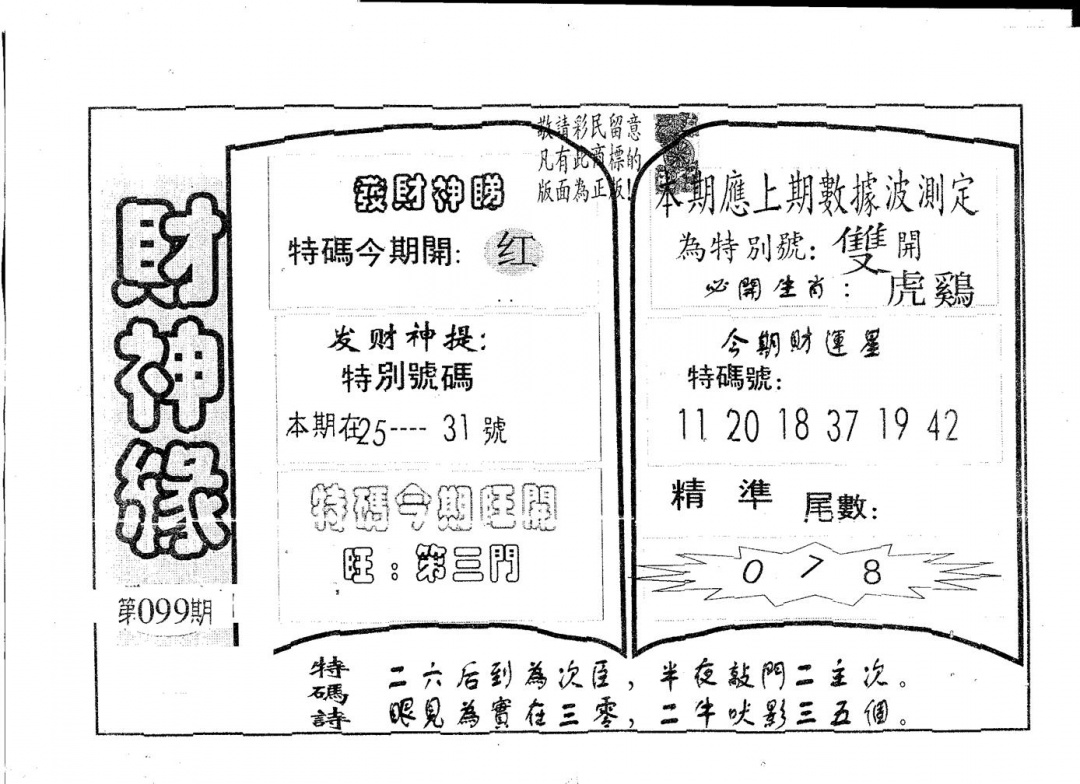 財神緣
第099期
敬請彩民留意
凡有此商標的
版面為正版!
發財神睇
特碼今期開: 红
发财神提:
特別號碼
本期在25---- 31 號
特碼今期旺開
旺:第三門
本期應上期數據波測定
為特別號: 雙開
必開生肖: 虎鷄
今期財運星
特碼號:
11 20 18 37 19 42
精準 尾數:
0 7 8
特碼詩
二六后到為次臣,半夜敲門二主次。
眼見為實在三零,二牛吠影三五個。